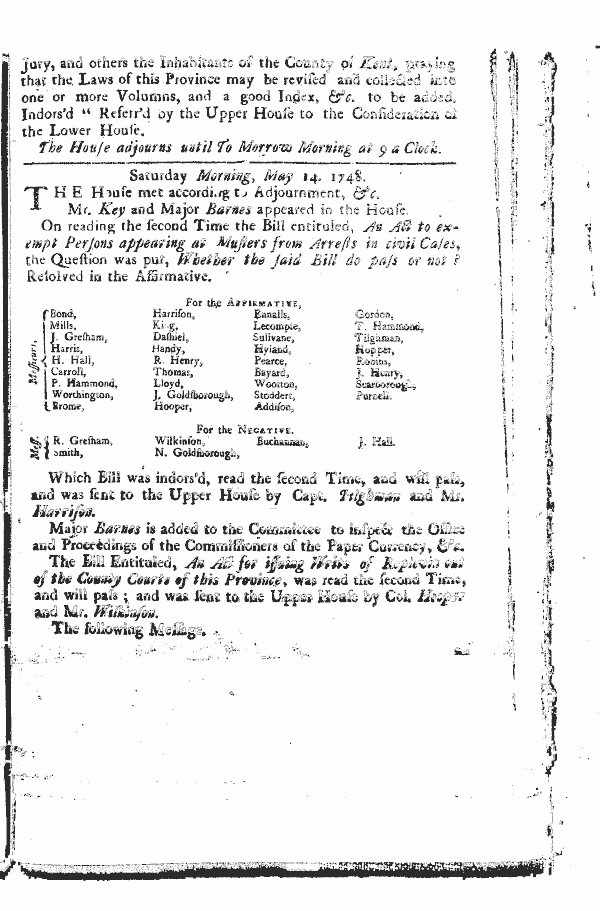 Jury, and others the Inhabitants of the County of Kent, praying
that the Laws of this Province may be reviſed and collected into
one or more Volumns, and a good Index, &c. to be added.
Indors'd " Referr'd by the Upper Houſe to the Conſideration of
the Lower Houſe.
The Houſe adjourns until To Morrow Morning at 9 a Clock.
Saturday Morning, May 14. 1748.
THE Houſe met according to Adjournment, &c.
Mr. Key and Major Barnes appeared in the Houſe.
On reading the ſecond Time the Bill entituled, An Act to ex-
empt Perſons appearing at Muſters from Arreſts in civil Caſes,
the Queſtion was put, Whether the ſaid Bill do paſs or not ?
Reſolved in the Affirmative.
For the AFFIRMATIVE,
Meſſieurs,
Bond, Harriſon, Ennalls, Gordon,
Mills, King, Lecompte, T. Hammond,
J. Greſham, Daſhiel, Sulivane, Tilghman,
Harris, Handy, Hyland, Hopper,
H. Hall, R. Henry, Pearce, Robins,
Carroll, Thomas, Bayard, J. Henry,
P. Hammond, Lloyd, Wootton, Scarborough,
Worthington, J. Goldſborough, Stoddert, Purnell.
Brome, Hooper, Addiſon,
For the NEGATIVE.
Meſſ.
R. Greſham, Wilkinſon, Buchannan, J. Hall.
Smith, N. Goldſborough,
Which Bill was indors'd, read the ſecond Time, and will paſs,
and was ſent to the Upper Houſe by Capt. Tilghman and Mr.
Harriſon.
Major Barnes is added to the Committee to inſpect the Office
and Proceedings of the Commiſſioners of the Paper Currency, &c.
The Bill Entituled, An Act for iſſuing Writs of Replevin out
of the County Courts of this Province, was read the ſecond Time,
and will paſs ; and was ſent to the Upper Houſe by Col. Hooper
and Mr. Wilkinſon.
The following Meſſage.